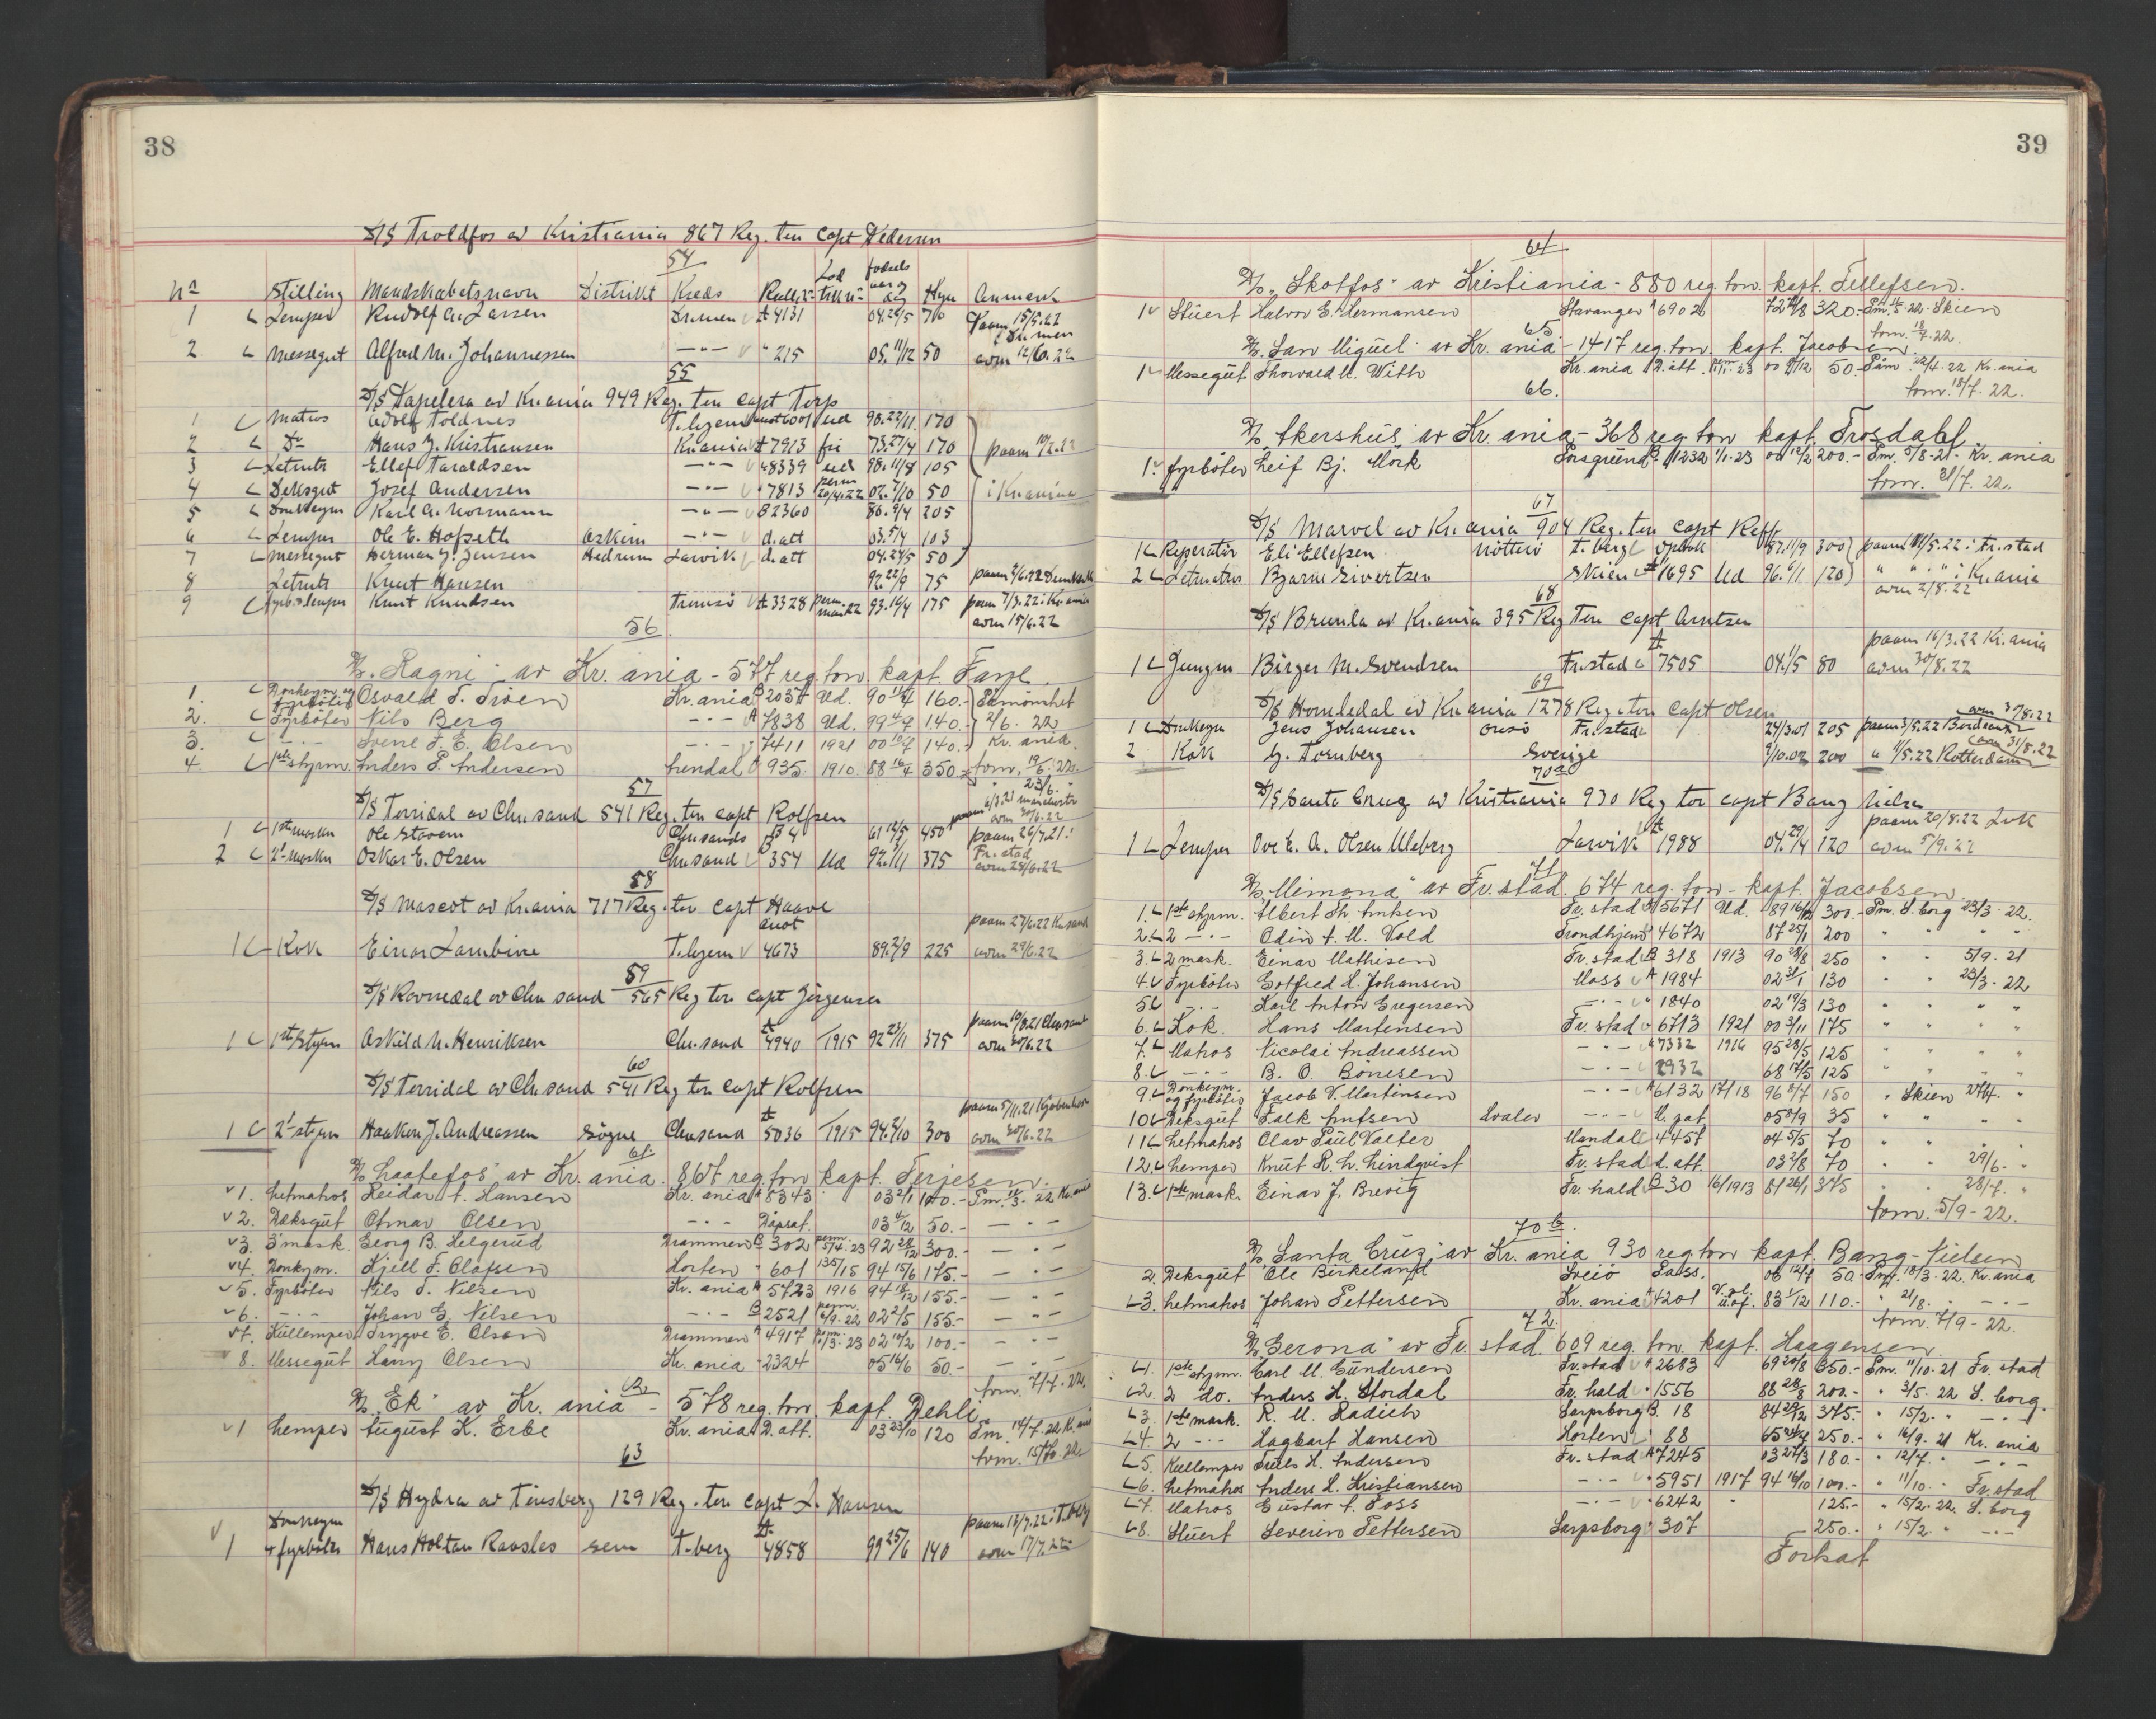 38
S/S Troldfos av Kristiania 867 Reg. ton Capt Pedersen
54
No Stilling Mandskabetsnavn Distrikt Kreds Rulle no Lod trk no fødsels aar og dag Hyre Anmerk
1 Lemper Rudolf A. Larsen Drmen A 4131 04.29/5 70 Paam 15/5.22
i Drmen
2 Messegut Alfred M. Johannessen —"— " 215 05.11/12 50 avm 12/6.22
55
S/S Kapelera av Kr.ania 949 Reg. ton Capt Torp
1 Matros Adolf Toldnes T.hjem ud 98.22/11 170
2 Do Hans J. Kristiansen Kr.ania A 7913 fri 73.27/4 170 paam 10/2.22
3 Letmtr Ellef Taraldsen —"— 8339 ud 98.11/8 105
4 Deksgut Josef Andersen —"— 7813 perm 20/4.22 02.7/10 50 i Kr.ania
5 Donkeym Karl A. Normann —"— B 2360 86.9/4 205
6 Lemper Ole E. Hofseth Askim —"— d.att 03.5/4 103
7 Messegut Herman J. Jensen Hedrum Larvik d.att 04.24/5 50
8 Letmtr Knut Hansen 92.22/9 75 paam 2/6.22 Dunkerk
9 Fyrb. o lemper Knut Knudsen Tromsö A 3328 perm 93.16/4 175 paam 7/3.22 i Kr.ania
avm 15/6.22
56
D/S "Ragni" av Kr. ania - 577 reg. ton. kapt. Faye.
1. Donkeym. og fyrböter Osvald T. Troen Kr. ania B 2034 Ud. 90 11/4 160.- Påmönstret
2. Fyrböter Nils Berg —"— A 7838 Ud. 99 4/9 140.- 2/6. 22
3. —"— Sverre F. E. Olsen —"— 7411 1921 00 19/9 140.- Kr. ania.
4. 1ste styrm. Anders P. Andersen Arendal 935 1910 88 16/4 350 favm. 19/6. 22.
" 23/6. "
57
S/S Torridal av Chr.sand 541 Reg. ton Capt Rolfsen
1 1ste maskn Ole Staven Chr.sands B 4 61 12/5 450 paam 26/7.21 i
2 2d maskn Oskar E. Olsen Chr.sand 354 Ud 92.1/11 375 Fr. stad
avm 28/6.22
58
S/S Mascot av Kr.ania 717 Reg. ton Capt Haave
paam 27/6.22 Kr.sand
1 Kok Einar Lambine T.hjem 4673 89.2/9 225 avm 29/6.22
59
S/S Ravnedal av Chr.sand 565 Reg ton Capt Jörgensen
paam 10/8.21 Chr.sand
1 1ste Styrm Askild N. Henriksen Chr.sand A 4940 1915 92 23/11 375 avm 30/6.22
60
S/S Torridal av Chr.sand 541 Reg ton Capt Rolfsen
paam 5/11.21 Kjöbenhavn
1 2d styrm Haakon J. Andreassen Sögne Chr.sand A 5036 1915 94.2/10 300 avm 30/6.22
61.
D/S "Laatefos" av Kr. ania. 867 reg. ton kapt. Terjesen.
1. Letmatros Reidar A. Hansen Kr. ania A 8343 03 2/1 100.- Pm. 14/3. 22 Kr. ania
2. Dæksgut Otmar Olsen —"— 03 4/12 50.- —"—
3. 3' mask. Georg B. Helgerud Drammen B 302 perm. 5/4. 23 92 28/12 300.- —"—
4. Donkym. Kjell F. Olafsen Horten " 601 94 15/6 175.- —"—
5. Fyrböter Nils S. Nilsen Kr. ania A 5723 1916 94 18/12 155.- —"—
6. —"— Johan E. Nilsen —"— B 2521 perm. 6/9. 22 02 2/5 155.- —"—
7. Kullemper Trygve E. Olsen Drammen A 4917 perm. 1/3. 23 02 10/2 100.- —"—
8. Messegut Harry Olsen Kr. ania " 2324 05 16/6 50.- —"—
favm. 7/7. 22.
62
D/S "Ek" av Kr. ania - 578 reg. ton. kapt. Dehli
1 Lemper August K. Erbe Kr. ania D. att. 03 23/10 120 Pm. 14/7. 22 Kr. ania
favm. 15/7. 22
63
S/S Hydra av Tönsberg 129 Reg. ton Capt L. Hansen
Donkeym paam 13/7.22 i T.berg
1 + fyrböter Hans Holtan Ravslos Sem T.berg A 4858 99 25/6 140 avm 17/7.22
39
64
D/S "Skotfos" av Kristiania - 880 reg. ton. kapt. Tellefsen.
1 Stuert Halvor E. Hermansen Stavanger A 6902 72 28/8 320.- Pm. 15/5. 22. Skien
65 favm. 18/7. 22.
D/S. San Miguel av Kr. ania - 1417 reg. ton. kapt. Jacobsen.
1 Messegut Thorvald M. With Kr. ania D. att. 50.- Påm. 22/4. 22 Kr. ania
66. favm. 18/7. 22.
D/S "Akershus" av Kr. ania - 368 reg. ton kapt. Trosdahl.
1. fyrböter Leif Bj. Mork Porsgrund B 1232 1/1. 23 00 12/2 200.- Pm. 5/8-21. Kr. ania
favm. 31/7. 22.
67
S/S Marvel av Kr.ania 904 Reg. ton Capt Reff
1 Reperatör Eli Ellefsen Nötterö T. berg 87.11/9 300 paam 11/5.22 i Fr.stad
2 Letmatros Bjarne Sivertsen Skien A 1695 Ud 96.6/11 120 " " . " i Kr.ania
avm 2/8.22
68
S/S Brunla av Kr.ania 395 Reg Ton Capt Arntzen
paam 16/3.22 Kr.ania
1 Jungm Birger M. Svendsen Fr.stad A 7505 04.1/5 80 avm 30/8.22
69
S/S Hornledal av Kr.ania 1278 Reg. ton Capt Olsen
avm 31/8.22
1 Donkeym Jens Johansen Onsö Fr.stad 24/3.01 205 paam 3/5.22 Bordeaux
avm 31/8.22
2 Kok G. Tornberg Sverige 9/10.02 200 " 11/5.22 Rotterdam
70a
S/S Santa Cruz av Kristiania 930 Reg ton Capt Bang Nielsen
paam 20/8.22 Lvk
1 Lemper Ove E. A. Olsen Uleberg Larvik A 1988 04.29/4 120 avm 5/9.22
71
D/S "Mimona" av Fr. stad. 674 reg. ton - kapt. Jacobsen.
1. 1ste styrm. Albert Th. Amtsen Fr. stad A 5671 Ud. 89 16/12 300.- Pm. S. borg 23/3. 22.
2. 2 —"— Odin A. M. Vold Trondhjem 4672 87 25/1 200 " " " "
3. 2 mask. Einar Mathisen Fr. stad B 318 1913 90 28/8 250 " " 5/9. 21
4. Fyrböter Gotfred H. Johansen Moss A 1984 02 31/1 130 " " 23/3. 22
5. —"— Karl Anton Gregersen —"— " 1840 02 19/3 130 " " " "
6. Kok. Hans Martensen Fr. stad " 6713 1921 00 3/11 175 " " " "
7. Matros Nicolai Andreassen —"— A 7332 1916 95 28/5 125 " " " "
8. —"— B. O. Bönesen —"— 2932 68 17/5 125 " " " "
9. Donkeym. og fyrböter Jacob V. Martinsen —"— A 6132 17/18 96 8/7 150 " Skien 27/4. "
10 Deksgut Falk Amtsen Hvaler —"— 05 8/9 35 " " " "
11 Letmatros Olav Paul Valter Mandal 4457 04 5/5 70 " " " "
12. Lemper Knut R. L. Lindqvist Fr. stad d. att. 03 2/8 70 " " 29/6. "
13. 1ste mask. Einar J. Brevig Fr. hald B 30 16/1913 81 26/1 375 " " 28/7. "
favm. 5/9 - 22.
70 b.
D/S "Santa Cruz" av Kr. ania 930 reg ton kapt. Bang-Nielsen
2. Deksgut Ole Birkeland Sveiö Pass. 06 12/7 50.- Pm. 18/3. 22. Kr. ania
3. Letmatros Johan Pettersen Kr. ania A 4201 83 1/12 110.- " 21/8. —"—
72. favm. 7/9 - 22.
D/S "Gerona" av Fr. stad. 609 reg. ton. kapt. Haagensen.
1. 1ste styrm. Carl M. Gundersen Fr. stad A 2683 69 20/8 350.- Pm. 11/10. 21 Fr. stad
2. 2 do. Anders H. Stordal Fr. hald " 1556 88 28/8 200.- " 3/5. 22 S. borg.
3. 1ste mask. R. M. Radich Sarpsborg B. 18 84 29/12 375.- " 15/2. " —"—
4. 2 —"— Hagbart Hansen Horten 88 250.- " 16/9. 21 Kr. ania
5. Kullemper Truls H. Andersen Fr. stad A 7245 03 27/3 180.- " 12/7. " —"—
6. Letmatros Anders L. Kristiansen —"— " 5951 1917 94 16/10 100.- " 11/10. " Fr. stad
7. Matros Gustav A. Foss —"— " 6242 125.- " 15/2. 22. S. borg
8. Stuert Severin Pettersen Sarpsborg 307 250.- " 15/2. " —"—
Fortsat